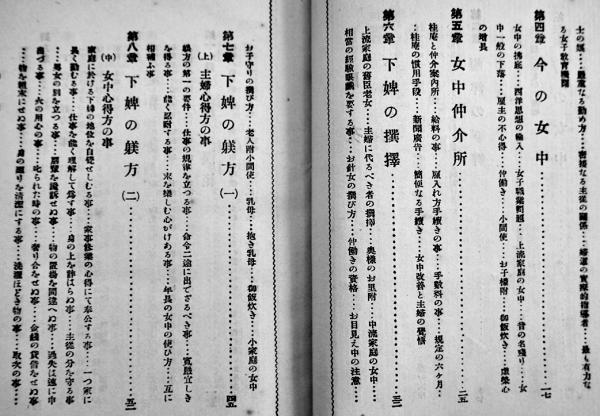 士の娘…嚴重なる勤め方…密接なる主從の關係…婦道の實際的指導者…最も有力な
る女子敎育機關
第四章 今の女中…一七
女中の拂底…西洋思想の輸入…女子職業問題…上流家庭の女中…昔の名殘り…女
中一般の下落…雇主の不心得…仲働き…小間使…お子樣附…御飯炊き…虛榮心
の增長
第五章 女中仲介所…二五
桂庵と仲介案内所…給料の事…雇入れ方手續きの事…手數料の事…規定の六ヶ月…
桂庵の慣用手段…新聞廣告…簡便なる手續き…女中改善と主婦の覺悟
第六章 下婢の撰擇…三二
上流家庭の舊臣老女…主婦に代るべき者の撰擇…奧樣のお里附…中流家庭の女中…
相當の經驗眼識を要する事…お針女の撰び方…仲働きの資格…お目見え中の注意…
お子守りの撰び方…老人附小間使…乳母…抱き乳母…御飯炊き…小家庭の女中
第七章 下婢の躾方(一)…四五
(上) 主婦心得方の事
躾方の第一の要件…仕事の規律を立つる事…命令二途に出でざるべき事…寬嚴宜しき
を得る事…能く忍耐する事…末を樂しむ心がけある事…年長の女中の使ひ方…互に
相補ふ事
第八章 下婢の躾方(二)…五二
(中) 女中心得方の事
家庭に於ける下婢の地位を自覺せしむる事…家事修業の心得にて奉公する事…一つ家に
長く勤むる事…仕事を能く理解して爲す事…身の上を詐はらぬ事…主從の分を守る事
…婢女の日を立つる事…朋輩を讒訴せぬ事…物の置場を間違へぬ事…過失は速に申
出づる事…火の用心の事…叱られた時の事…寄り合をせぬ事…金錢の貸借をせぬ事
…物を粗末にせぬ事…身の廻りを淸潔にする事…洗濯ほどき物の事…取次の事…